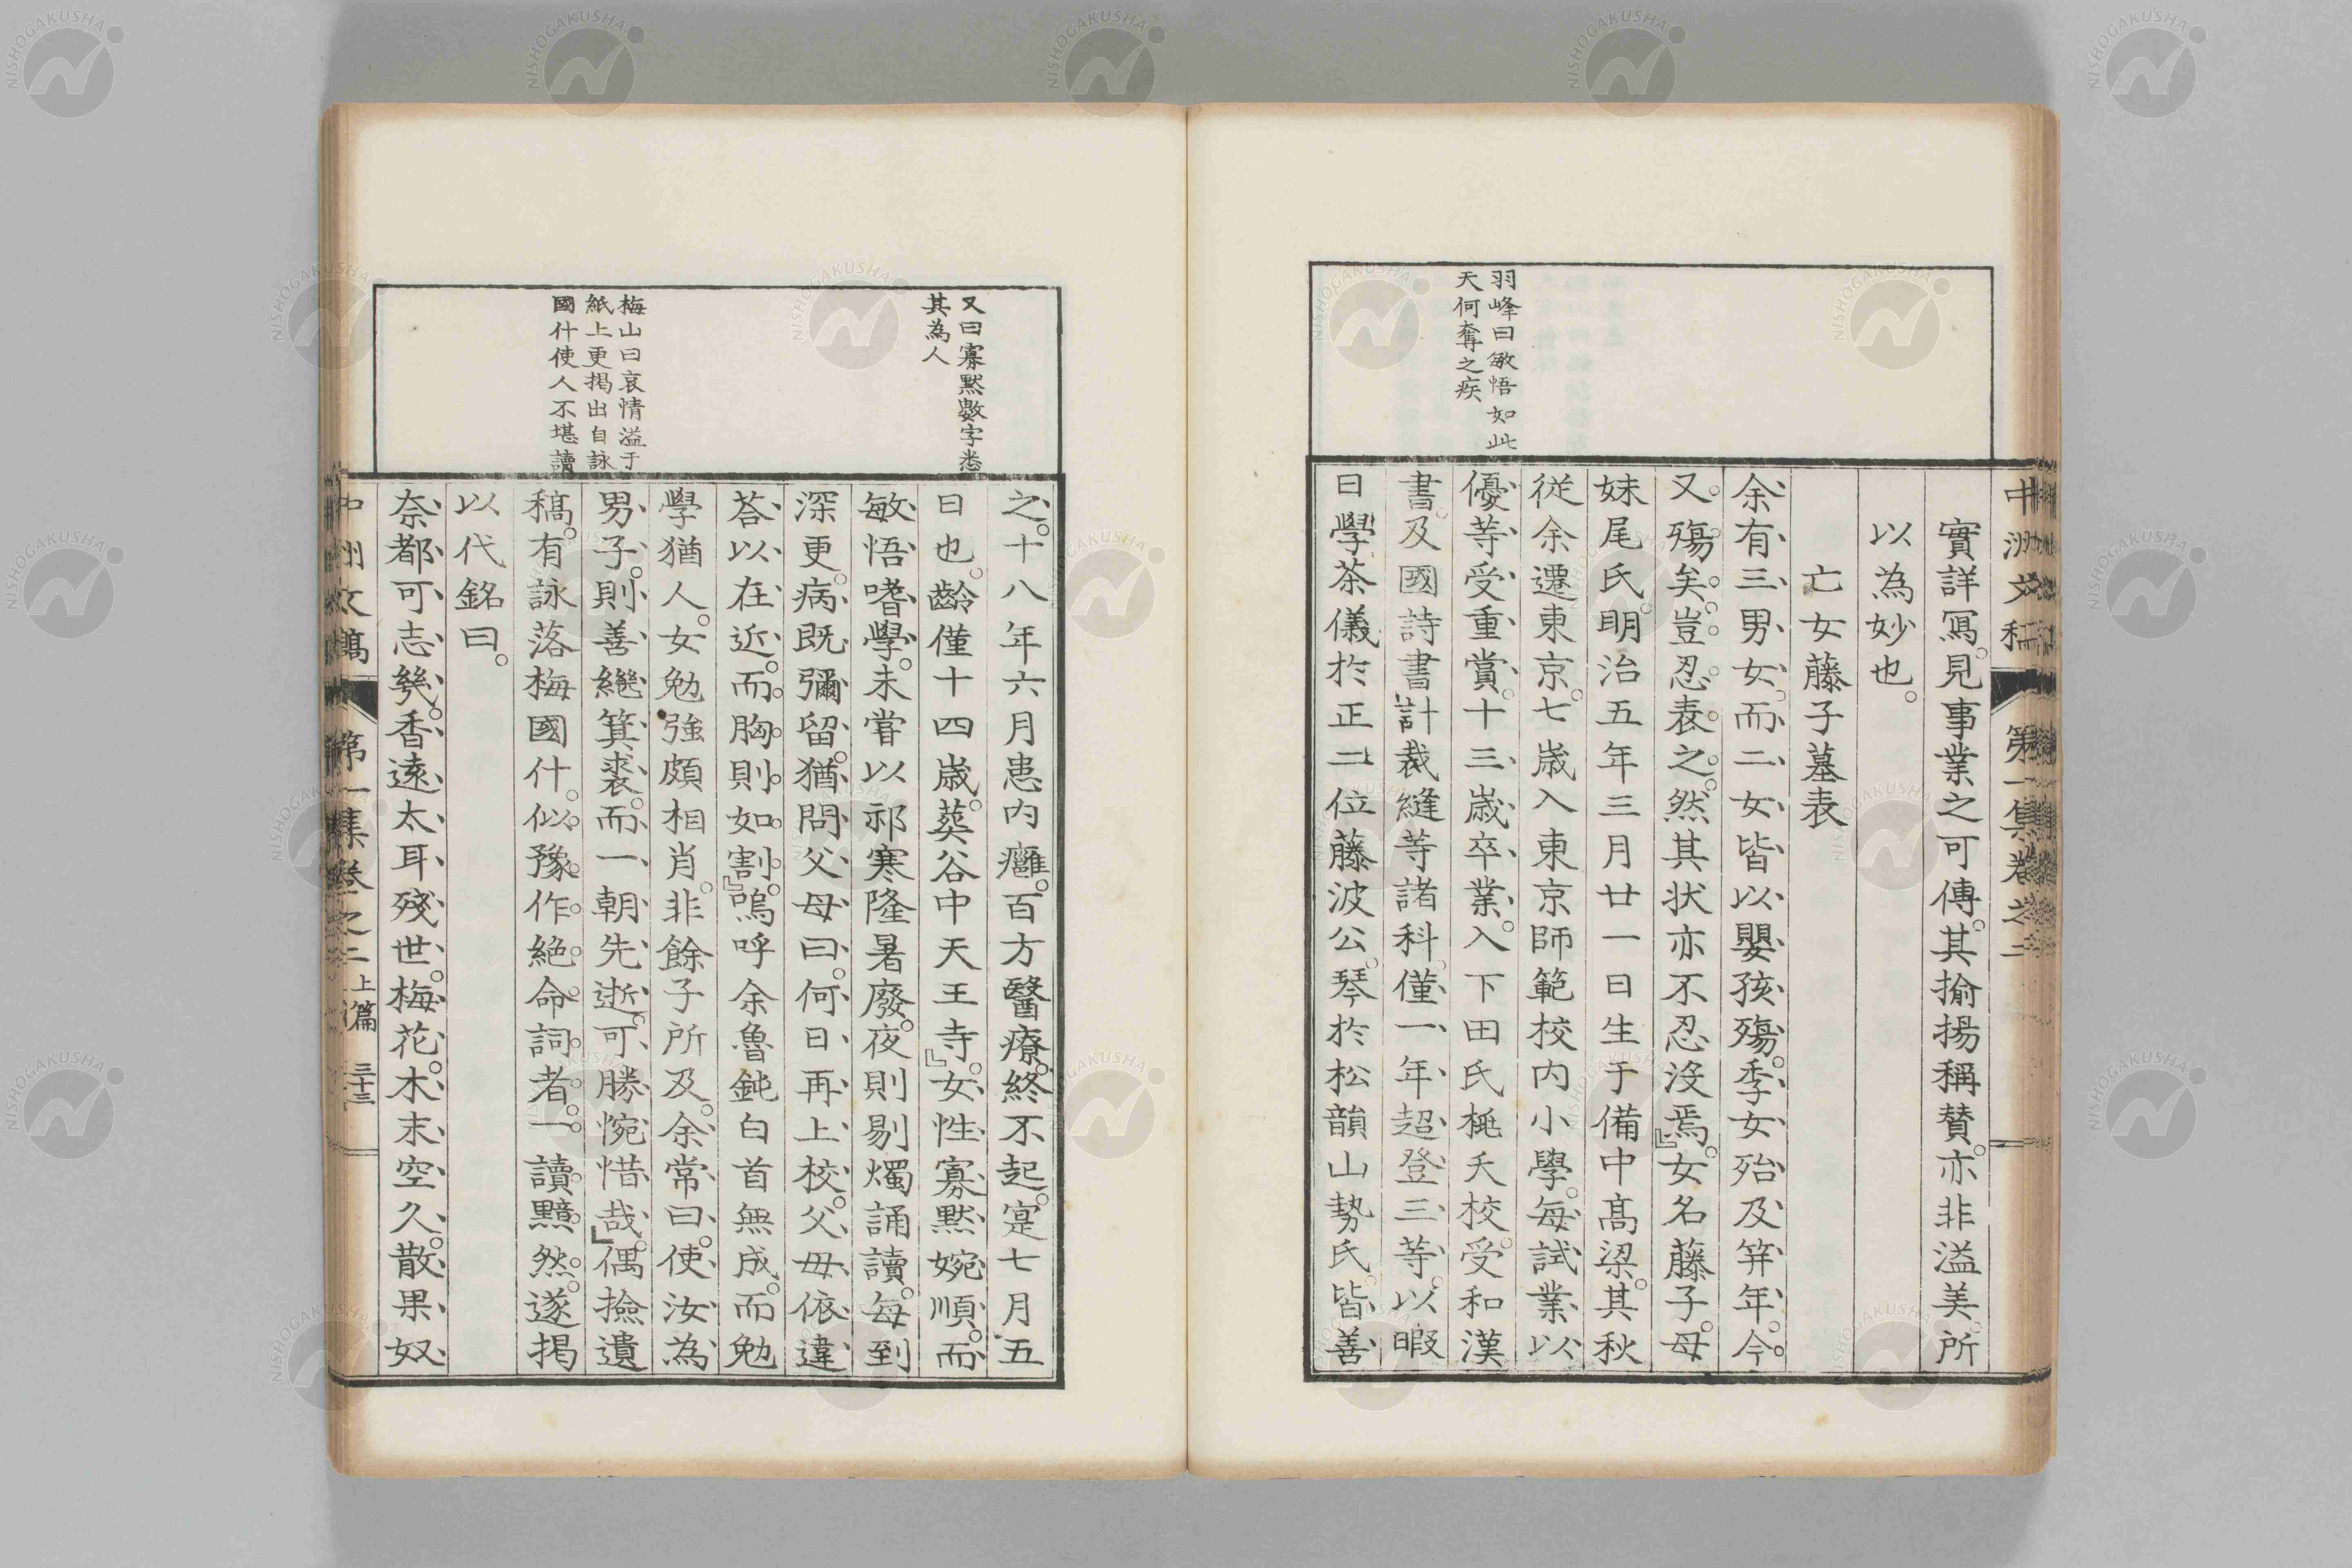 中洲文稿 第一集卷之二
實詳寫。見事業之可傳。其揄揚稱賛。亦非溢美。所
以為妙也。
亡女藤子墓表
余有三男女。而二女皆以嬰孩殤。季女殆及笄年。今
又殤矣。豈忍表之。然其状亦不忍沒焉。』女名藤子。母
妹尾氏。明治五年三月廿一日生于備中高梁。其秋
從余遷東京。七歳入東京師範校内小學。每試業以
優等受重賞。十三歳卒業。入下田氏桃夭校。受和漢
書。及國詩書計裁縫等諸科。僅一年超登三等。以暇
日學茶儀於正二位藤波公。琴於松韻山勢氏。皆善
羽峰曰敏悟如此
天何奪之疾
之。十八年六月患内癰。百方醫療。終不起。寔七月五
日也。齡僅十四歳。葬谷中天王寺。』女性寡黙婉順。而
敏悟嗜學。未嘗以祁寒隆暑廢。夜則剔燭誦讀。每到
深更。病既彌留。猶問父母曰。何日再上校。父母依違
荅以在近。而胸則如割。』嗚呼余魯鈍白首無成。而勉
學猶人。女勉強頗相肖。非餘子所及。余常曰。使汝為
男子。則善繼箕裘。而一朝先逝。可勝惋惜哉。』偶撿遺
稿。有詠落梅國什。似豫作絕命詞者。一讀黯然。遂掲
以代銘曰。
奈都可志幾。香遠太耳殘世。梅花。木末空久。散果奴
又曰寡黙數字悉
其為人
梅山曰哀情溢于
紙上更掲出自詠
國什使人不堪讀
中洲文稿 第一集卷之二上篇 三十三
NISHOGAKUSHA